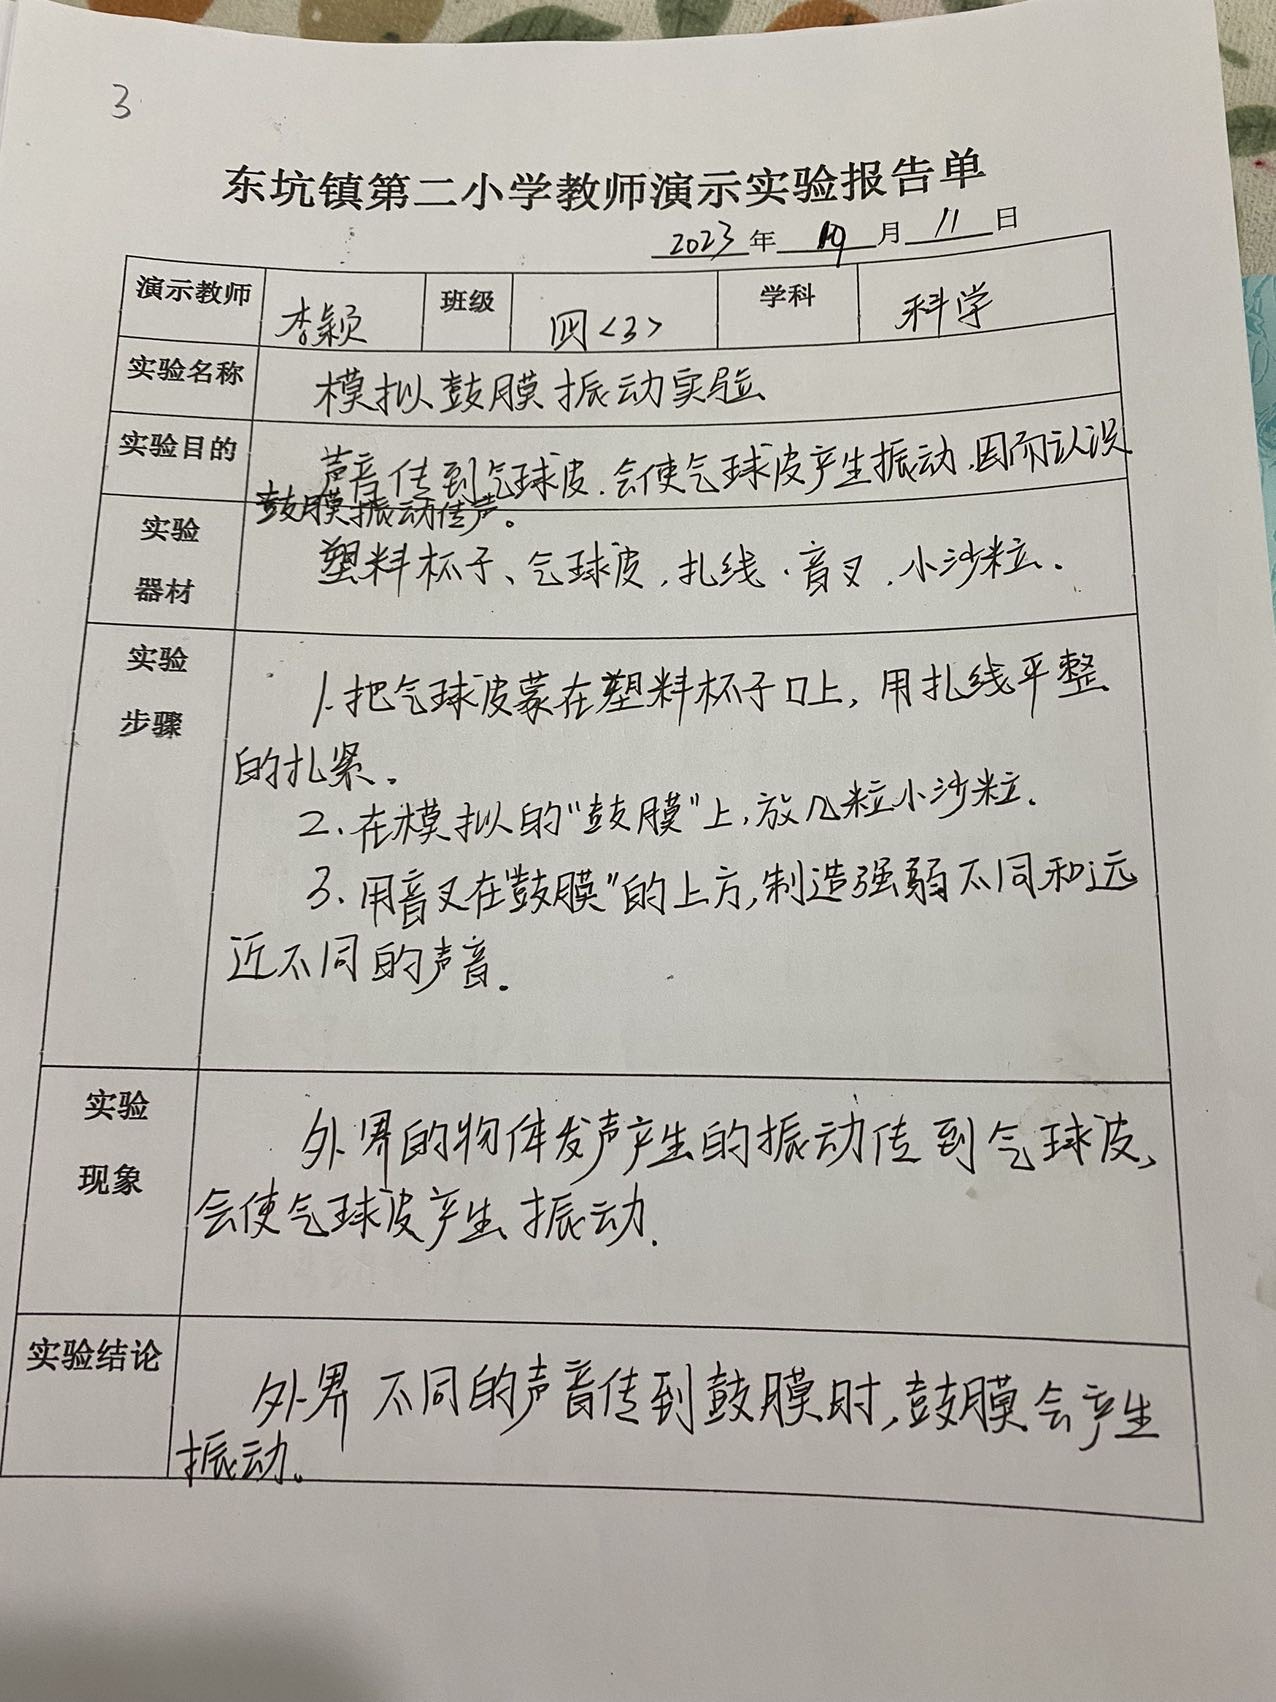 3
东坑镇第二小学教师演示实验报告单
2023年 10 月 11 日
演示教师 李颖 班级 四<3> 学科 科学
实验名称 模拟鼓膜振动实验
实验目的 声音传到气球皮.会使气球皮产生振动.因而认识
鼓膜振动传声。
实验
器材
塑料杯子、气球皮,扎线.音叉,小沙粒.
实验
步骤
1.把气球皮蒙在塑料杯子口上,用扎线平整
的扎紧.
2.在模拟的“鼓膜”上,放几粒小沙粒.
3.用音叉在“鼓膜”的上方,制造强弱不同和远
近不同的声音.
实验
现象
外界的物体发声产生的振动传到气球皮,
会使气球皮产生振动.
实验结论
外界不同的声音传到鼓膜时,鼓膜会产生
振动。